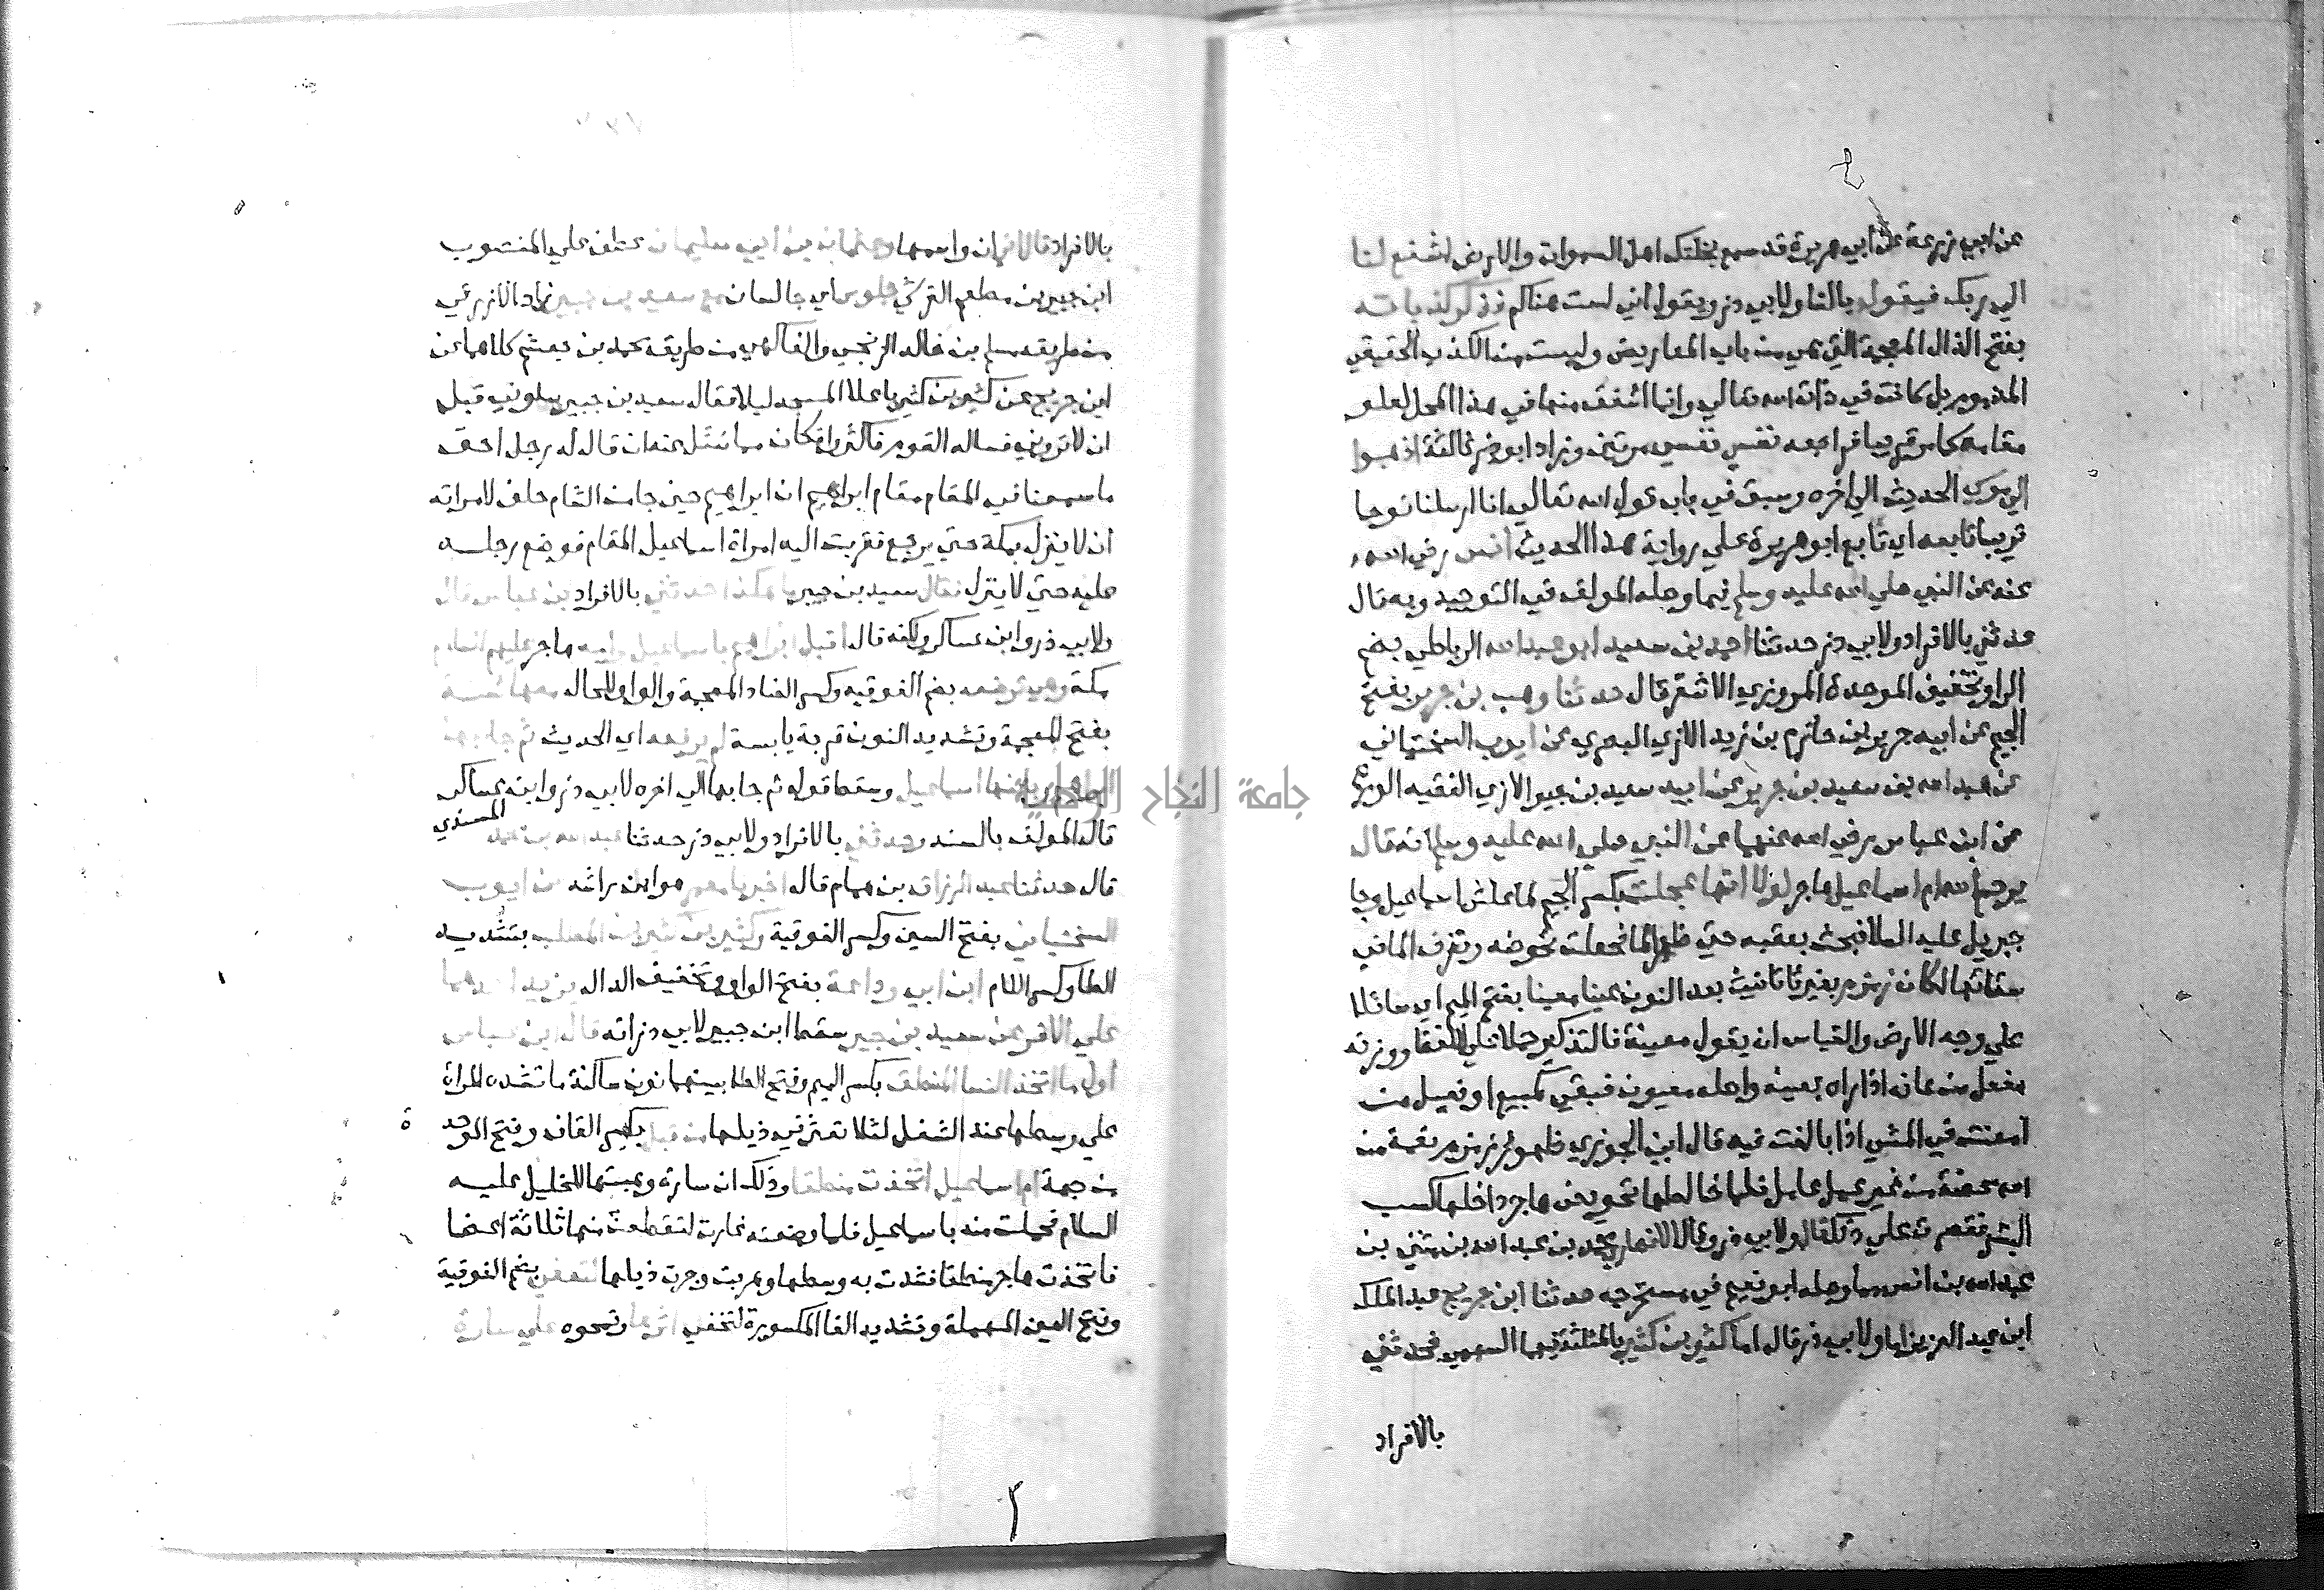 عن ابي زرعة عن ابي هريرة قد سمع بخلتك اهل السموات والارض اشفع لنا
الي ربك فيقول بالفا ولابي ذر ويقول اني لست هناكم فذكر كذباته
بفتح الذال المعجمة التي هي من باب المعاريض وليست من الكذب الحقيقي
المذموم بل كانت في ذات الله تعالي وانما اشفق منها في هذا المحل لعلو
مقامه كما مر قريبا فراجعه نفسي نفسي مرتين وزاد ابو ذر ثالثة اذهبوا
الي موسي الحديث الي اخره وسبق في باب قول الله تعالي انا ارسلنا نوحا
قريبا تابعه اي تابع ابو هريرة علي رواية هذا الحديث انس رضي الله
عنه عن النبي صلي الله عليه وسلم فيما وصله المولف في التوحيد وبه قال
حدثني بالافراد ولابي ذر حدثنا احمد بن سعيد ابو عبد الله الرباطي بضم
الرا وتخفيف الموحدة المروزي الاشقر قال حدثنا وهب بن جرير بفتح
الجيم عن ابيه جرير بن حازم بن زيد الازدي البصري عن ايوب السختياني
عن عبد الله بن سعيد بن جبير عن ابيه سعيد بن جبير الازدي الفقيه الورع
عن ابن عباس رضي الله عنهما عن النبي صلي الله عليه وسلم انه قال
يرحم الله ام اسماعيل هاجر لولا انها عجلت بكسر الجيم لما عطش اسماعيل وجا
جبريل عليه السلام فبحث بعقبه حتي ظهر الما فجعلت تحوضه وتغرف الما في
سقائها لكان زمزم بغير تا تانيث بعد النون عينا معينا بفتح الميم اي سائلا
علي وجه الارض والقياس ان يقول معينة فالتذكير حملا علي اللفظ ووزنه
مفعل من عانه اذا راه بعينه واصله معيون فبقي كمبيع او فعيل من
امعنت في المشي اذا بالغت فيه قال ابن الجوزي ظهور زمزم نعمة من
الله محضة من غير عمل عامل فلما خالطها تحويض هاجر داخلها كسب
البشر فقصرت علي ذلك قال ولابي ذر وقال الانصاري محمد بن عبد الله بن مثني بن
عبد الله بن انس مما وصله ابو نعيم في مستخرجه حدثنا ابن جريج عبد الملك
ابن عبد العزيز اما ولابي ذر قال اما كثير بن كثير بالمثلثة فيهما السهمي فحدثني
بالافراد
بالافراد قال اني وعثمان بن ابي سليمان عطف علي المنصوب
ابن جبير بن مطعم القرشي جلوس اي جالسان مع سعيد بن جبير زاد الازرقي
من طريق مسلم بن خالد الزنجي والفاكهي من طريق محمد بن جعشم كلاهما عن
ابن جريج عن كثير بن كثير باعلا المسجد ليلا فقال سعيد بن جبير سلوني قبل
ان لا تروني فساله القوم فاكثروا فكان مما سئل عنه ان قال له رجل احق
ما سمعنا في المقام مقام ابراهيم ان ابراهيم حين جا من الشام حلف لامراته
ان لا ينزل بمكة حتي يرجع فقربت اليه امراة اسماعيل المقام فوضع رجله
عليه حتي لا ينزل فقال سعيد بن جبير ما هكذا حدثني بالافراد ابن عباس قال
ولابي ذر وابن عساكر ولكنه قال اقبل ابراهيم باسماعيل وامه هاجر عليهم السلام
مكة وهي ترضعه بضم الفوقية وكسر الضاد المعجمة والواو للحال معها شنة
بفتح المعجمة وتشديد النون قربة يابسة لم يرفعه اي الحديث ثم جا بها
ابراهيم وبابنها اسماعيل وسقط قوله ثم جا بها الي اخره لابي ذر وابن عساكر
قال المولف بالسند وحدثني بالافراد ولابي ذر حدثنا عبد الله بن محمد المسندي
قال حدثنا عبد الرزاق بن همام قال اخبرنا معمر هو ابن راشد عن ايوب
السختياني بفتح السين وكسر الفوقية وكثير بن كثير بن المطلب بتشديد
الطا وكسر اللام ابن ابي وداعة بفتح الواو وتخفيف الدال يزيد احدهما
علي الاخر عن سعيد بن جبير سقط ابن جبير لابي ذر انه قال ابن عباس
اول ما اتخذ النسا المنطق بكسر الميم وفتح الطا بينهما نون ساكنة ما تشده المراة
علي وسطها عند الشغل لئلا تعثر في ذيلها من قبل بكسر القاف وفتح الموحدة
من جهة ام اسماعيل اتخذت منطقا وذلك ان سارة وهبتها للخليل عليه
السلام فحملت منه باسماعيل فلما وضعته غارت لتقطعن منها ثلاثة اعضا
فاتخذت هاجر منطقا فشدت به وسطها وهربت وجرت ذيلها لتعفي بضم الفوقية
وفتح العين المهملة وتشديد الفا المكسورة لتخفي اثرها وتمحوه علي سارة
جامعة النجاح الوطنية